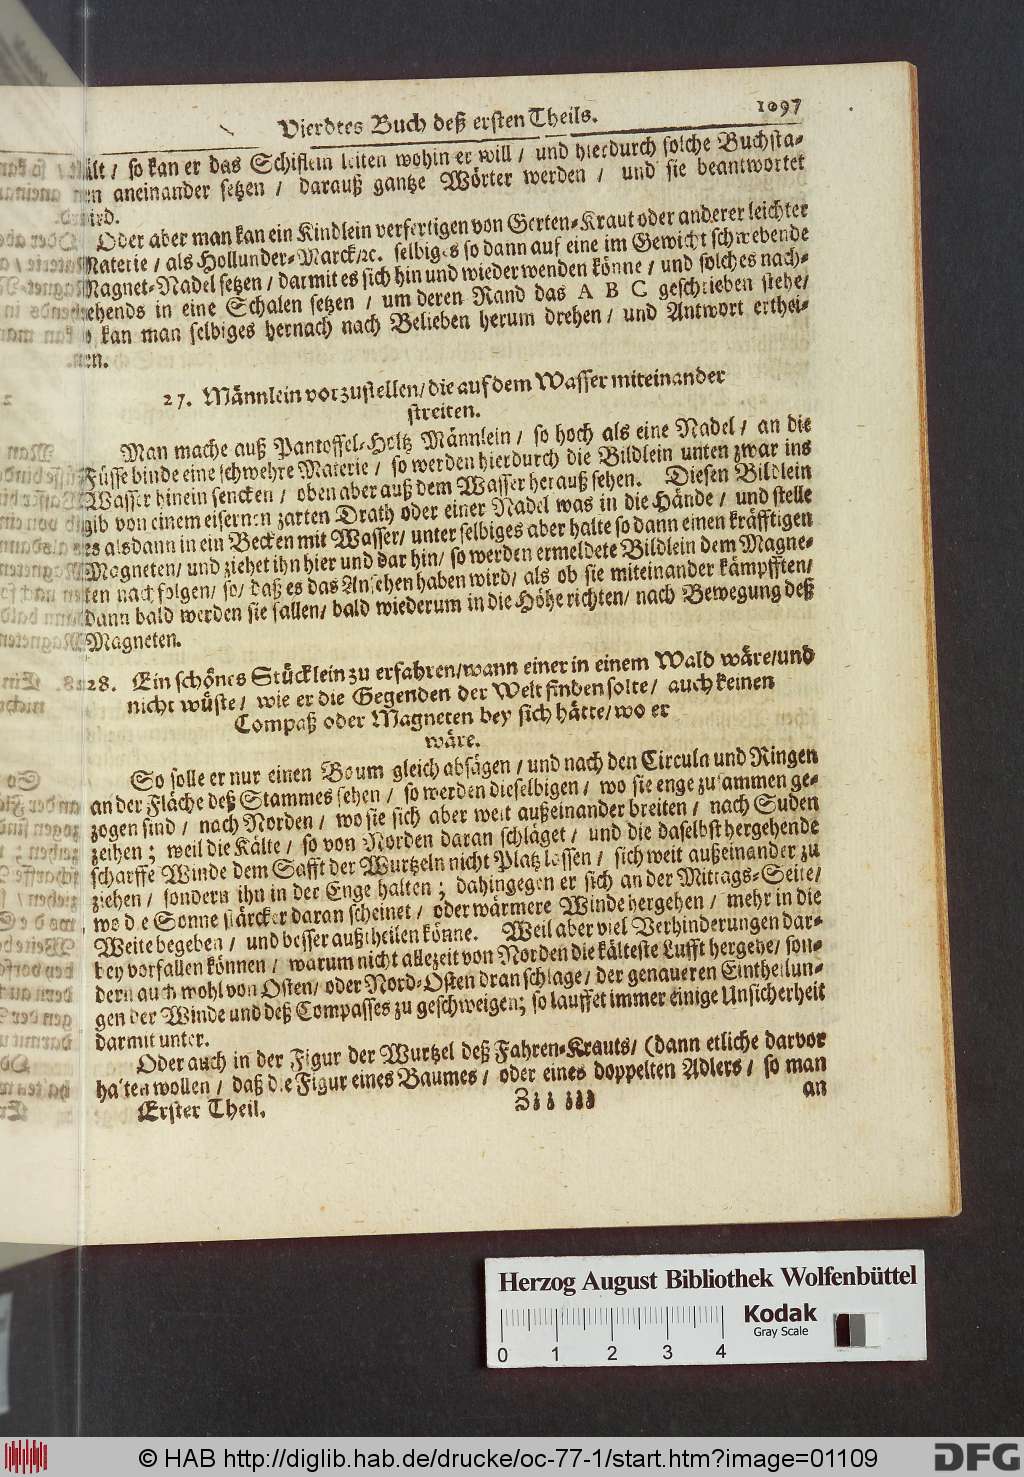 Vierdtes Buch deß ersten Theils. 1097
ält / so kan er das Schiflein leiten wohin er will / und hierdurch solche Buchsta-
en aneinander setzen / darauß gantze Wörter werden / und sie beantwortet
ird.
Oder aber man kan ein Kindlein verfertigen von Gerten-Kraut oder anderer leichter
Materie / als Hollunder-Marck/ꝛc. selbiges so dann auf eine im Gewicht schwebende
Magnet-Nadel setzen / darmit es sich hin und wieder wenden könne / und solches nach-
ehends in eine Schalen setzen / um deren Rand das A B C geschrieben stehe/
o kan man selbiges hernach nach Belieben herum drehen / und Antwort erthei-
en.
27. Männlein vorzustellen/ die auf dem Wasser miteinander
streiten.
Man mache auß Pantoffel-Holtz Männlein / so hoch als eine Nadel / an die
Füsse binde eine schwehre Materie / so werden hierdurch die Bildlein unten zwar ins
Wasser hinein sencken / oben aber auß dem Wasser herauß sehen. Diesen Bildlein
gib von einem eisernen zarten Drath oder einer Nadel was in die Hände / und stelle
es alsdann in ein Becken mit Wasser/ unter selbiges aber halte so dann einen kräfftigen
Magneten/ und ziehet ihn hier und dar hin/ so werden ermeldete Bildlein dem Magne-
ten nachfolgen/ so/ daß es das Ansehen haben wird/ als ob sie miteinander kämpfften/
dann bald werden sie fallen/ bald wiederum in die Höhe richten/ nach Bewegung deß
Magneten.
28. Ein schönes Stücklein zu erfahren/wann einer in einem Wald wäre/und
nicht wüste / wie er die Gegenden der Welt finden solte / auch keinen
Compaß oder Magneten bey sich hätte/wo er
wäre.
So solle er nur einen Boum gleich absägen / und nach den Circuln und Ringen
an der Fläche deß Stammes sehen / so werden dieselbigen / wo sie enge zusammen ge-
zogen sind / nach Norden / wo sie sich aber weit außeinander breiten / nach Suden
zeihen ; weil die Kälte / so von Norden daran schläget / und die daselbst hergehende
scharffe Winde dem Safft der Wurtzeln nicht Platz lassen / sich weit außeinander zu
ziehen / sondern ihn in der Enge halten ; dahingegen er sich an der Mittags-Seite/
wo die Sonne stärcker daran scheinet / oder wärmere Winde hergehen / mehr in die
Weite begeben / und besser außtheilen könne. Weil aber viel Verhinderungen dar-
bey vorfallen können / warum nicht allezeit von Norden die kälteste Lufft hergehe/ son-
dern auch wohl von Osten/ oder Nord-Osten dran schlage / der genaueren Eintheilun-
gen der Winde und deß Compasses zu geschweigen; so lauffet immer einige Unsicherheit
darmit unter.
Oder auch in der Figur der Wurtzel deß Fahren-Krauts/ (dann etliche darvor
halten wollen / daß die Figur eines Baumes / oder eines doppelten Adlers / so man
Erster Theil. Zii iii an
Herzog August Bibliothek Wolfenbüttel
Kodak
Gray Scale
0 1 2 3 4
© HAB http://diglib.hab.de/drucke/oc-77-1/start.htm?image=01109
DFG